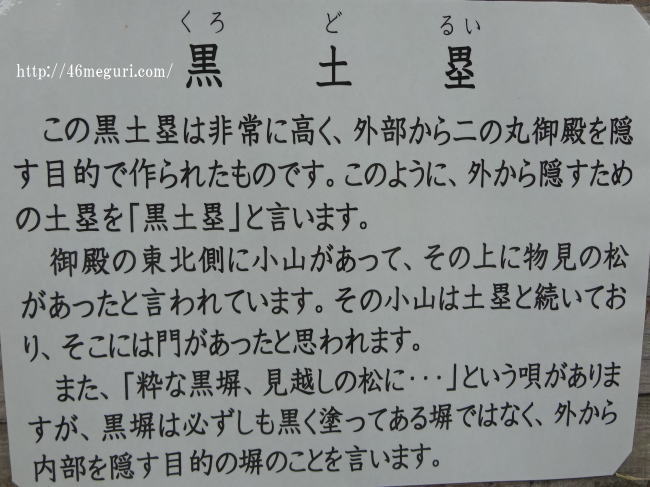 くろ ど るい
http://46meguri.com/
黒土塁
この黒土塁は非常に高く、外部から二の丸御殿を隠
す目的で作られたものです。このように、外から隠すため
の土塁を「黒土塁」と言います。
御殿の東北側に小山があって、その上に物見の松
があったと言われています。その小山は土塁と続いてお
り、そこには門があったと思われます。
また、「粋な黒塀、見越しの松に・・・」という唄がありま
すが、黒塀は必ずしも黒く塗ってある塀ではなく、外から
内部を隠す目的の塀のことを言います。